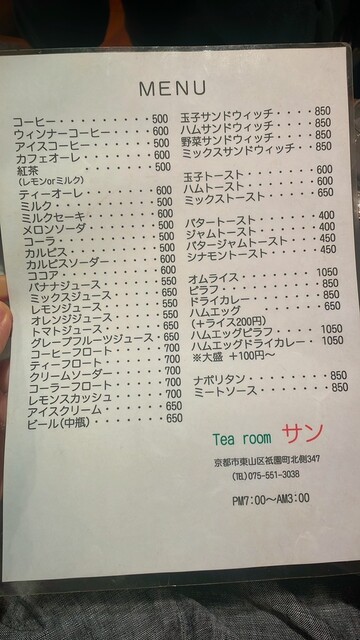 MENU
コーヒー・・・・・・・・・500
ウィンナーコーヒー・・・・600
アイスコーヒー・・・・・・500
カフェオーレ・・・・・・・600
紅茶・・・・・・・・・・・500
(レモンorミルク)
ティーオーレ・・・・・・・600
ミルク・・・・・・・・・・500
ミルクセーキ・・・・・・・600
メロンソーダ・・・・・・・500
コーラ・・・・・・・・・・500
カルピス・・・・・・・・・500
カルピスソーダー・・・・・600
ココア・・・・・・・・・・600
バナナジュース・・・・・・550
ミックスジュース・・・・・650
レモンジュース・・・・・・550
オレンジジュース・・・・・550
トマトジュース・・・・・・650
グレープフルーツジュース・650
コーヒーフロート・・・・・700
ティーフロート・・・・・・700
クリームソーダー・・・・・700
コーラーフロート・・・・・700
レモンスカッシュ・・・・・700
アイスクリーム・・・・・・650
ビール(中瓶)・・・・・・・650
玉子サンドウィッチ・・・・850
ハムサンドウィッチ・・・・850
野菜サンドウィッチ・・・・850
ミックスサンドウィッチ・・850
玉子トースト・・・・・・・600
ハムトースト・・・・・・・600
ミックストースト・・・・・650
バタートースト・・・・・・400
ジャムトースト・・・・・・400
バタージャムトースト・・・450
シナモントースト・・・・・450
オムライス・・・・・・・・1050
ピラフ・・・・・・・・・・850
ドライカレー・・・・・・・850
ハムエッグ・・・・・・・・650
(＋ライス200円)
ハムエッグピラフ・・・・・1050
ハムエッグドライカレー・・1050
※大盛 ＋100円～
ナポリタン・・・・・・・・850
ミートソース・・・・・・・850
Tea room サン
京都市東山区祇園町北側347
(TEL)075-551-3038
PM7:00～AM3:00